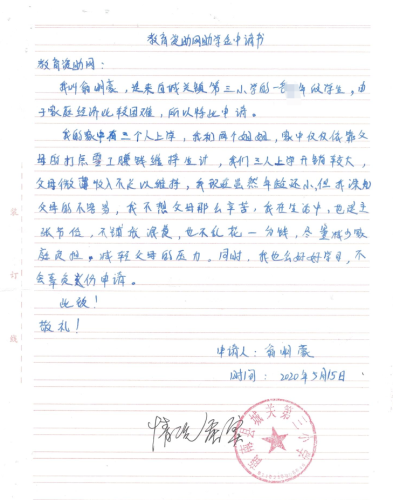 教育资助网助学金申请书
教育资助网：
我叫翁明豪，是来自城关镇第三小学的一名 年级学生，由
于家庭经济比较困难，所以特此申请。
我的家中有三个人上学，我和两个姐姐，家中仅仅依靠父
母应打点零工赚钱维持生计，我们三人上学开销较大，
父母微薄收入不足以维持，我现在虽然年龄还小，但我深知
父母的不容易，我不想父母那么辛苦，我在生活中，也是主
张节位，不铺张浪费，也不乱花一分钱，尽量减少家
庭负担。减轻父母的压力。同时，我也会好好学习，不
会辜负这份申请。
此致！
敬礼！
申请人：翁明豪
时间：2020年5月15日
情况属实
县城关第三小学
装
订
线